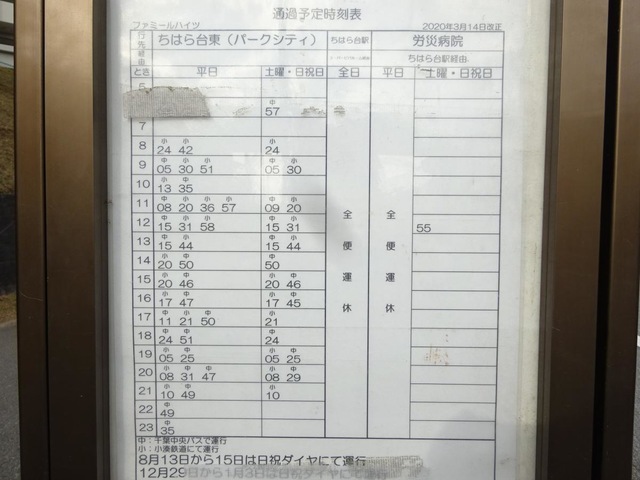 通過予定時刻表
ファミールハイツ
2020年3月14日改正
行先 ちはら台東（パークシティ） ちはら台駅 労災病院
経由 ちはら台駅経由
とき 平日 土曜・日祝日 全日 平日 土曜・日祝日
5
中
57
7
8 小24 小42 小24
9 中05 小30 小51 中05 小30
10 小13 中35
11 中08 小20 小36 小57 中09 小20
12 中15 小31 小58 中15 小31 55
13 中15 小44 中15 小44
14 小20 中50 中50
15 小20 中46 小20 中46
16 小17 中47 小17 中45
17 小11 小21 中50 小21
18 小24 中51 中24
19 小05 中25 小05 中25
20 中08 小31 中47 中08 小29
21 小10 中49 小10
22 中49
23 中35
全便運休
全便運休
中：千葉中央バスで運行
小：小湊鉄道にて運行
8月13日から15日は日祝ダイヤにて運行
12月29日から1月3日は日祝ダイヤにて運行